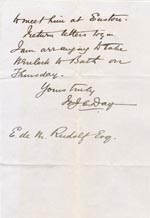 to meet him at Euston.
I return letters to you
I am arranging to take
Wenlock to Bath on
Thursday.
Yours truly
Day
E de M. Rudolf Esq.